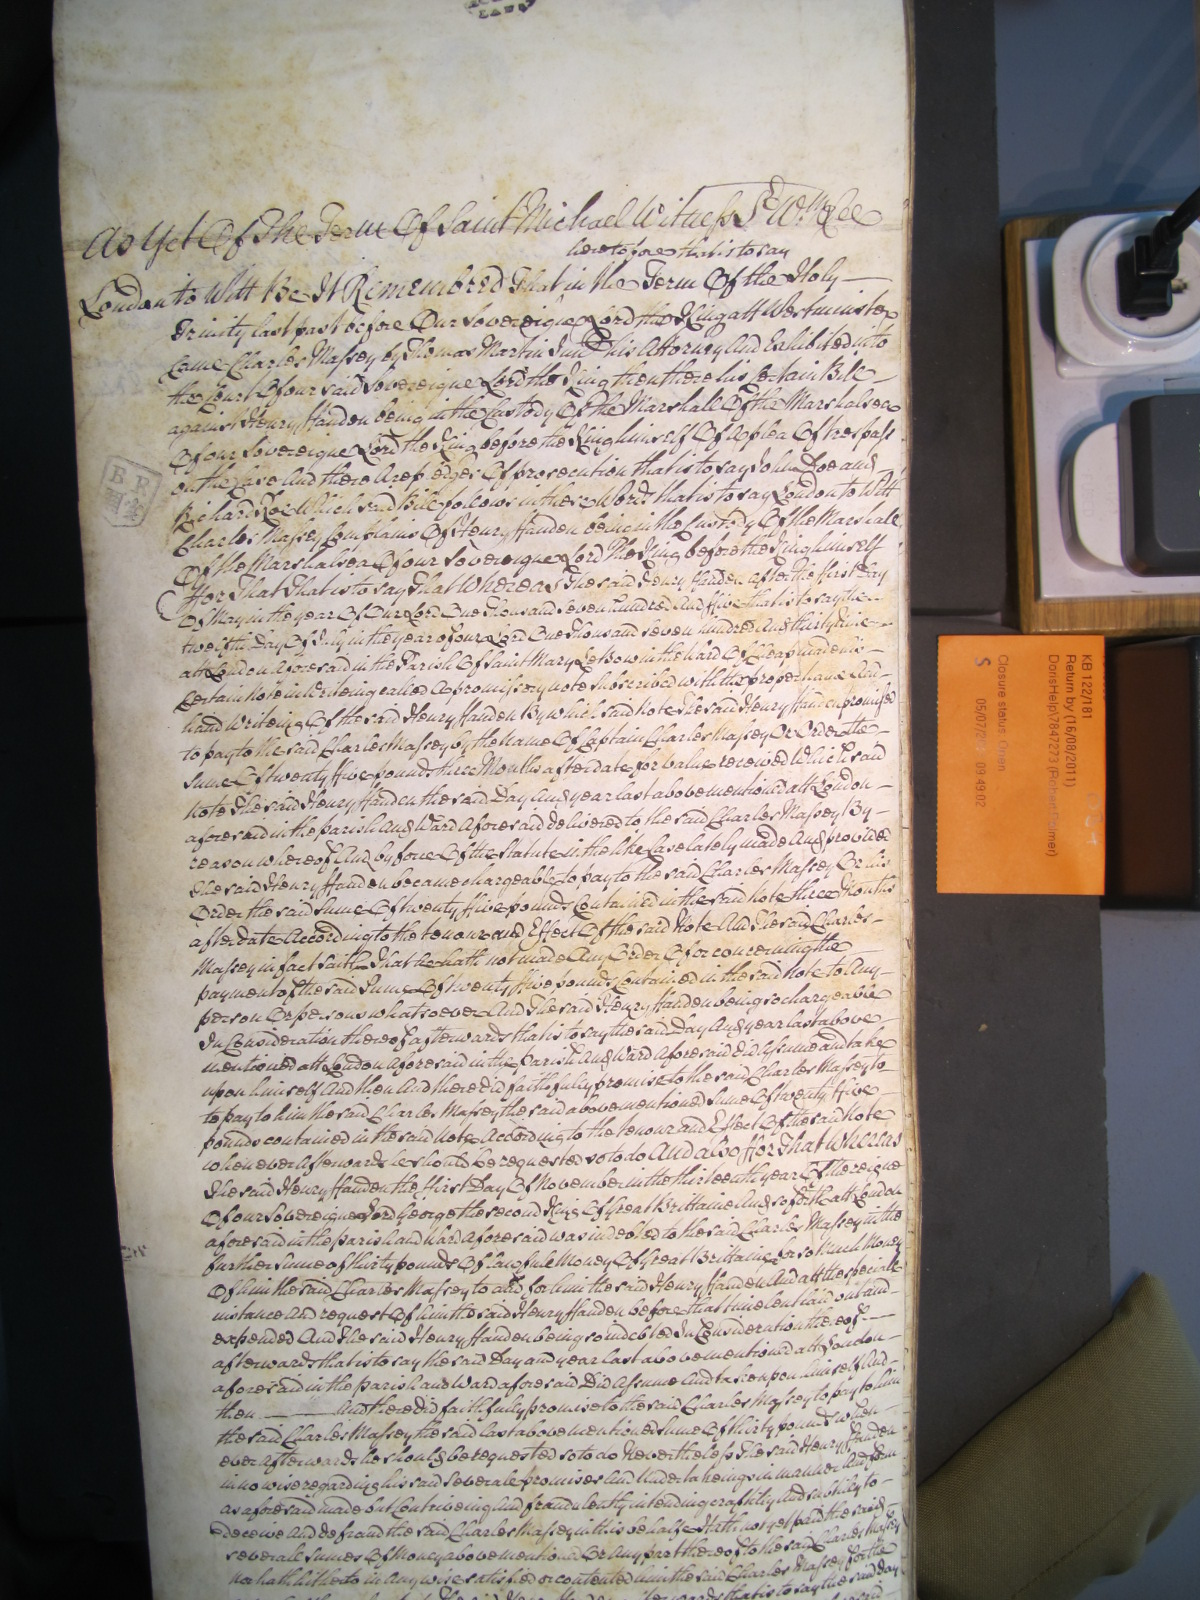 As Yet Of The Term Of Saint Michael Witness Sr Wm Lee
heretofore that is to say
London to Witt Be It Remembred That in the Term Of the Holy
Trinity last past before Our Sovereigne Lord the King att Westminster
Came Charles Massey by Thomas Martin Junr his Attorney And Exhibited into
the Court Of our said Sovereigne Lord the King then there his Certain Bile
against Henry Handen being in the Custody Of the Marshall Of the Marshalsea
Of our Sovereigne Lord the King before the King himself Of A plea Of trespass
on the Case And there Are pledges Of prosecution that is to say John Doe and
Richard Roe Which said Bile follows in these Words that is to say London to Witt
Charles Massey Complains Of Henry Handen being in the Custody Of the Marshall
Of the Marshalsea Of our Sovereigne Lord The King before the King himself
Ffor That that is to say That Whereas The said Henry Handen after the first Day
Of May in the year Of Our Lord One thousand seven hundred And ffive that is to say the
twelfth Day Of July in the year of our Lord One thousand seven hundred And thirty nine
att London Aforesaid in the Parish Of Saint Mary Le Bow in the Ward Of Cheap made his
Certain Note in Writeing called A promissory note subscribed with the proper name And
hand Writeing Of the said Henry Handen By which said Note The said Henry Handen promised
to pay to the said Charles Massey by the Name Of Captain Charles Massey Or Order the
Sume Of twenty ffive pounds three Months after date for value received Which said
Note The said Henry Handen the said Day And year last abovementioned att London
aforesaid in the parish And Ward Aforesaid delivered to the said Charles Massey By
reason whereof And by force Of the Statute in the like Case lately made And provided
The said Henry Handen became chargeable to pay to the said Charles Massey Or his
Order the said Sume Of twenty ffive pounds Contained in the said Note three Months
after date According to the tenour and Effect Of the said Note And The said Charles
Massey in fact saith That he hath not made Any Order Of or concerning the
payment of the said Sume Of twenty ffive pounds Contained in the said note to Any
person Or persons whatsoever And The said Henry Handen being so chargeable
In Consideration thereof afterwards that is to say the said Day And year last above
mentioned att London aforesaid in the parish And Ward Aforesaid did Assume and take
upon himself And then And there did faithfully promise to the said Charles Massey to
to pay to him the said Charles Massey the said abovementioned Sume Of twenty ffive
pounds contained in the said Note According to the tenour and Effect Of the said Note
whenever Afterwards he should be requested so to do And also Ffor That Whereas
The said Henry Handen the ffirst Day Of November in the thirteenth year Of the reigne
Of our Sovereigne Lord George the second King Of Great Brittaine And so forth att London
aforesaid in the parish and Ward aforesaid was indebted to the said Charles Massey in the
further Sume of thirty pounds Of Lawfule Money Of Great Brittaine for so Much Money
Of him the said Charles Massey to and for him the said Henry Handen And att the speciale
instance And request Of him the said Henry Handen before that time lent laid out and
expended And The said Henry Handen being so indebted In Consideration thereof
afterwards that is to say the said Day and year last abovementioned att London
aforesaid in the parish and Ward aforesaid Did Assume And take upon himself And
then And there did faithfully promise to the said Charles Massey to pay to him
the said Charles Massey the said last abovementioned Sume Of thirty pounds when
ever Afterwards he should be requested so to do Neverthelefs The said Henry Handen
in no wise regarding his said Severale promises And Undertakeings in manner And form
as aforesaid made but Contriveing And fraudulently intending craftily And subtilly to
deceive And defraud the said Charles Massey in this behalfe Hath not yet paid the said
severale Sumes Of Money abovementioned Or Any part thereof to the said Charles Massey
nor hath hitherto in Any wise satisfied or contented him the said Charles Massey for the
afterwards that is to say the said day
B R
KB 122/181
Return by (16/08/2011)
Closure status Open
05/07/ 09:49:02
S